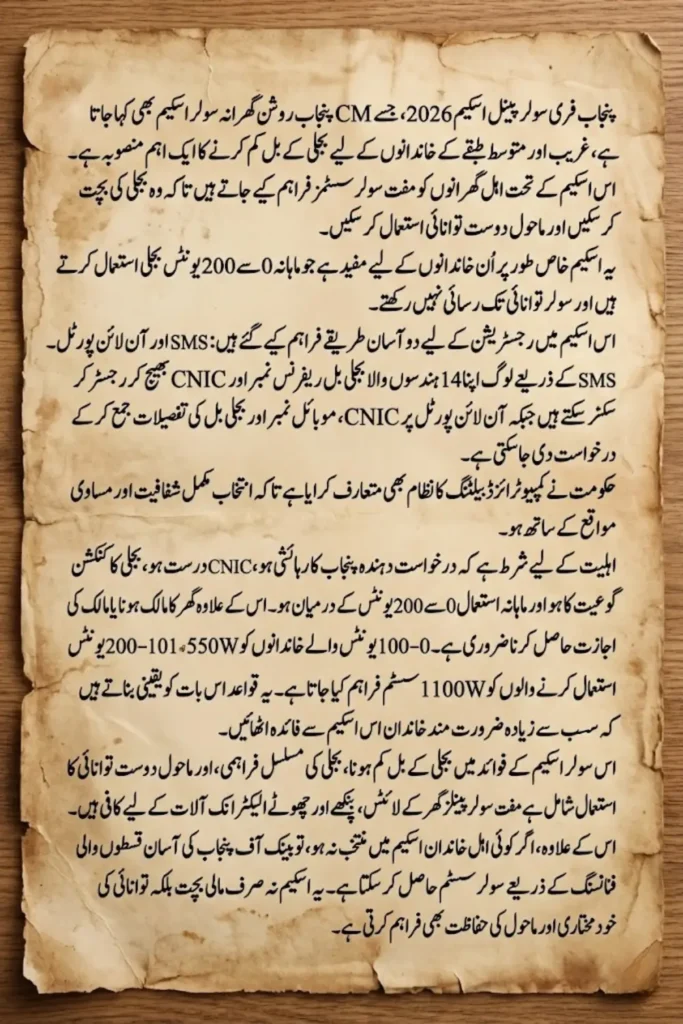 پنجاب فری سولر پینل اسکیم 2026، جسے CM پنجاب روشن گھرانہ سولر اسکیم بھی کہا جاتا
ہے، غریب اور متوسط طبقے کے خاندانوں کے لیے بجلی کے بل کم کرنے کا ایک اہم منصوبہ ہے۔
اس اسکیم کے تحت اہل گھرانوں کو مفت سولر سسٹمز فراہم کیے جاتے ہیں تاکہ وہ بجلی کی بچت
کر سکیں اور ماحول دوست توانائی استعمال کر سکیں۔
یہ اسکیم خاص طور پر اُن خاندانوں کے لیے مفید ہے جو ماہانہ 0 سے 200 یونٹس بجلی استعمال کرتے
ہیں اور سولر توانائی تک رسائی نہیں رکھتے۔
اس اسکیم میں رجسٹریشن کے لیے دو آسان طریقے فراہم کیے گئے ہیں: SMS اور آن لائن پورٹل۔
SMS کے ذریعے لوگ اپنا 14 ہندسوں والا بجلی بل ریفرنس نمبر اور CNIC بھیج کر رجسٹر کر
سکتے ہیں جبکہ آن لائن پورٹل پر CNIC، موبائل نمبر اور بجلی بل کی تفصیلات جمع کر کے
درخواست دی جا سکتی ہے۔
حکومت نے کمپیوٹرائزڈ بیلٹنگ کا نظام بھی متعارف کرایا ہے تاکہ انتخاب مکمل شفافیت اور مساوی
مواقع کے ساتھ ہو۔
اہلیت کے لیے شرط ہے کہ درخواست دہندہ پنجاب کا رہائشی ہو، CNIC درست ہو، بجلی کا کنکشن
گوعیت کا ہو اور ماہانہ استعمال 0 سے 200 یونٹس کے درمیان ہو۔ اس کے علاوہ گھر کا مالک ہونا یا مالک کی
اجازت حاصل کرنا ضروری ہے۔ 0–100 یونٹس والے خاندانوں کو 550W، 101–200 یونٹس
استعمال کرنے والوں کو 1100W سسٹم فراہم کیا جاتا ہے۔ یہ قواعد اس بات کو یقینی بناتے ہیں
کہ سب سے زیادہ ضرورت مند خاندان اس اسکیم سے فائدہ اٹھائیں۔
اس سولر اسکیم کے فوائد میں بجلی کے بل کم ہونا، بجلی کی مسلسل فراہمی، اور ماحول دوست توانائی کا
استعمال شامل ہے مفت سولر پینلز گھر کے لائٹس، پنکھے اور چھوٹے الیکٹرانک آلات کے لیے کافی ہیں۔
اس کے علاوہ، اگر کوئی اہل خاندان اسکیم میں منتخب نہ ہو، تو بینک آف پنجاب کی آسان قسطوں والی
فنانسنگ کے ذریعے سولر سسٹم حاصل کر سکتا ہے۔ یہ اسکیم نہ صرف مالی بچت بلکہ توانائی کی
خود مختاری اور ماحول کی حفاظت بھی فراہم کرتی ہے۔